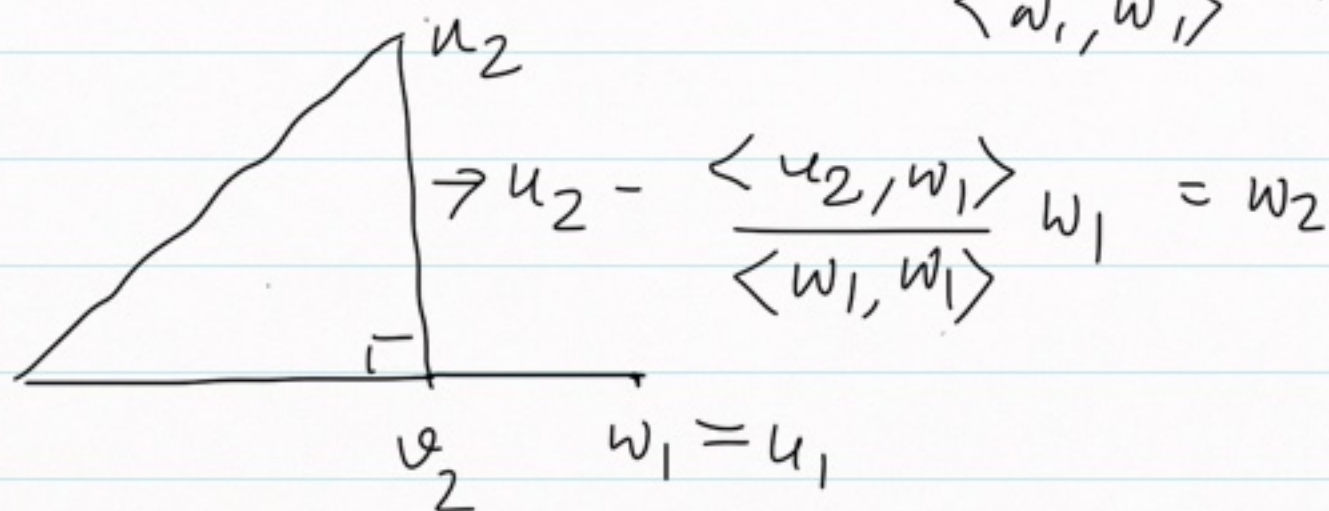 ⟨w₁, w₁⟩
u₂
→ u₂ - <u₂, w₁> / <w₁, w₁> w₁ = w₂
v₂ w₁ = u₁